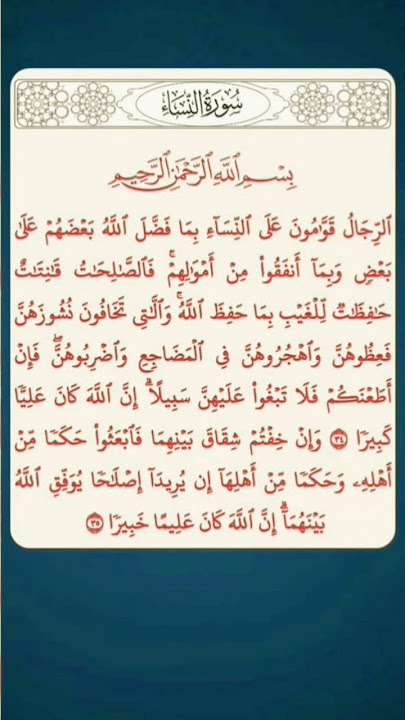 سُورَةُ النِّسَاءِ
بِسْمِ ٱللَّهِ ٱلرَّحْمَٰنِ ٱلرَّحِيمِ
ٱلرِّجَالُ قَوَّٰمُونَ عَلَى ٱلنِّسَآءِ بِمَا فَضَّلَ ٱللَّهُ بَعْضَهُمْ عَلَىٰ
بَعْضٍ وَبِمَآ أَنفَقُوا۟ مِنْ أَمْوَٰلِهِمْ ۚ فَٱلصَّٰلِحَٰتُ قَٰنِتَٰتٌ
حَٰفِظَٰتٌ لِّلْغَيْبِ بِمَا حَفِظَ ٱللَّهُ ۚ وَٱلَّٰتِى تَخَافُونَ نُشُوزَهُنَّ
فَعِظُوهُنَّ وَٱهْجُرُوهُنَّ فِى ٱلْمَضَاجِعِ وَٱضْرِبُوهُنَّ ۖ فَإِنْ
أَطَعْنَكُمْ فَلَا تَبْغُوا۟ عَلَيْهِنَّ سَبِيلًا ۗ إِنَّ ٱللَّهَ كَانَ عَلِيًّا
كَبِيرًا ٣٤ وَإِنْ خِفْتُمْ شِقَاقَ بَيْنِهِمَا فَٱبْعَثُوا۟ حَكَمًا مِّنْ
أَهْلِهِۦ وَحَكَمًا مِّنْ أَهْلِهَآ إِن يُرِيدَآ إِصْلَٰحًا يُوَفِّقِ ٱللَّهُ
بَيْنَهُمَآ ۗ إِنَّ ٱللَّهَ كَانَ عَلِيمًا خَبِيرًا ٣٥